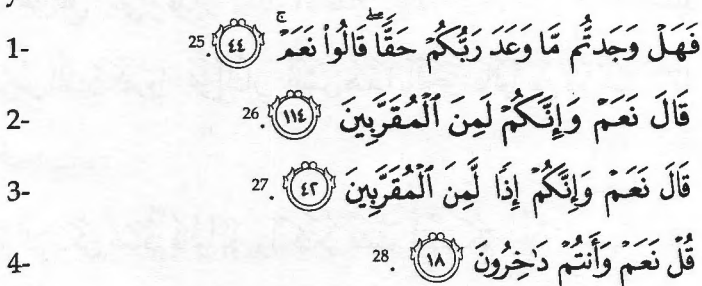 1- فَهَلْ وَجَدتُّم مَّا وَعَدَ رَبُّكُمْ حَقًّا ۖ قَالُوا۟ نَعَمْ ۚ ﴿٤٤﴾ .25
2- قَالَ نَعَمْ وَإِنَّكُمْ لَمِنَ ٱلْمُقَرَّبِينَ ﴿١١٤﴾ .26
3- قَالَ نَعَمْ وَإِنَّكُمْ إِذًا لَّمِنَ ٱلْمُقَرَّبِينَ ﴿٤٢﴾ .27
4- قُلْ نَعَمْ وَأَنتُمْ دَٰخِرُونَ ﴿١٨﴾ .28